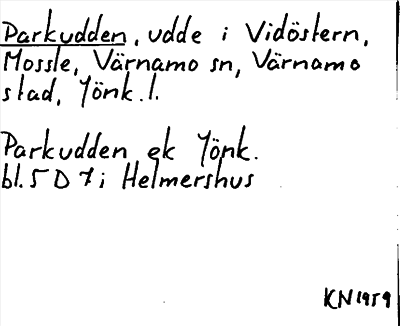 Parkudden, udde i Vidöstern,
Mossle, Värnamo sn, Värnamo
stad, Jönk. l.
Parkudden ek Jönk.
bl. 5 D 7 i Helmershus
KN 1959